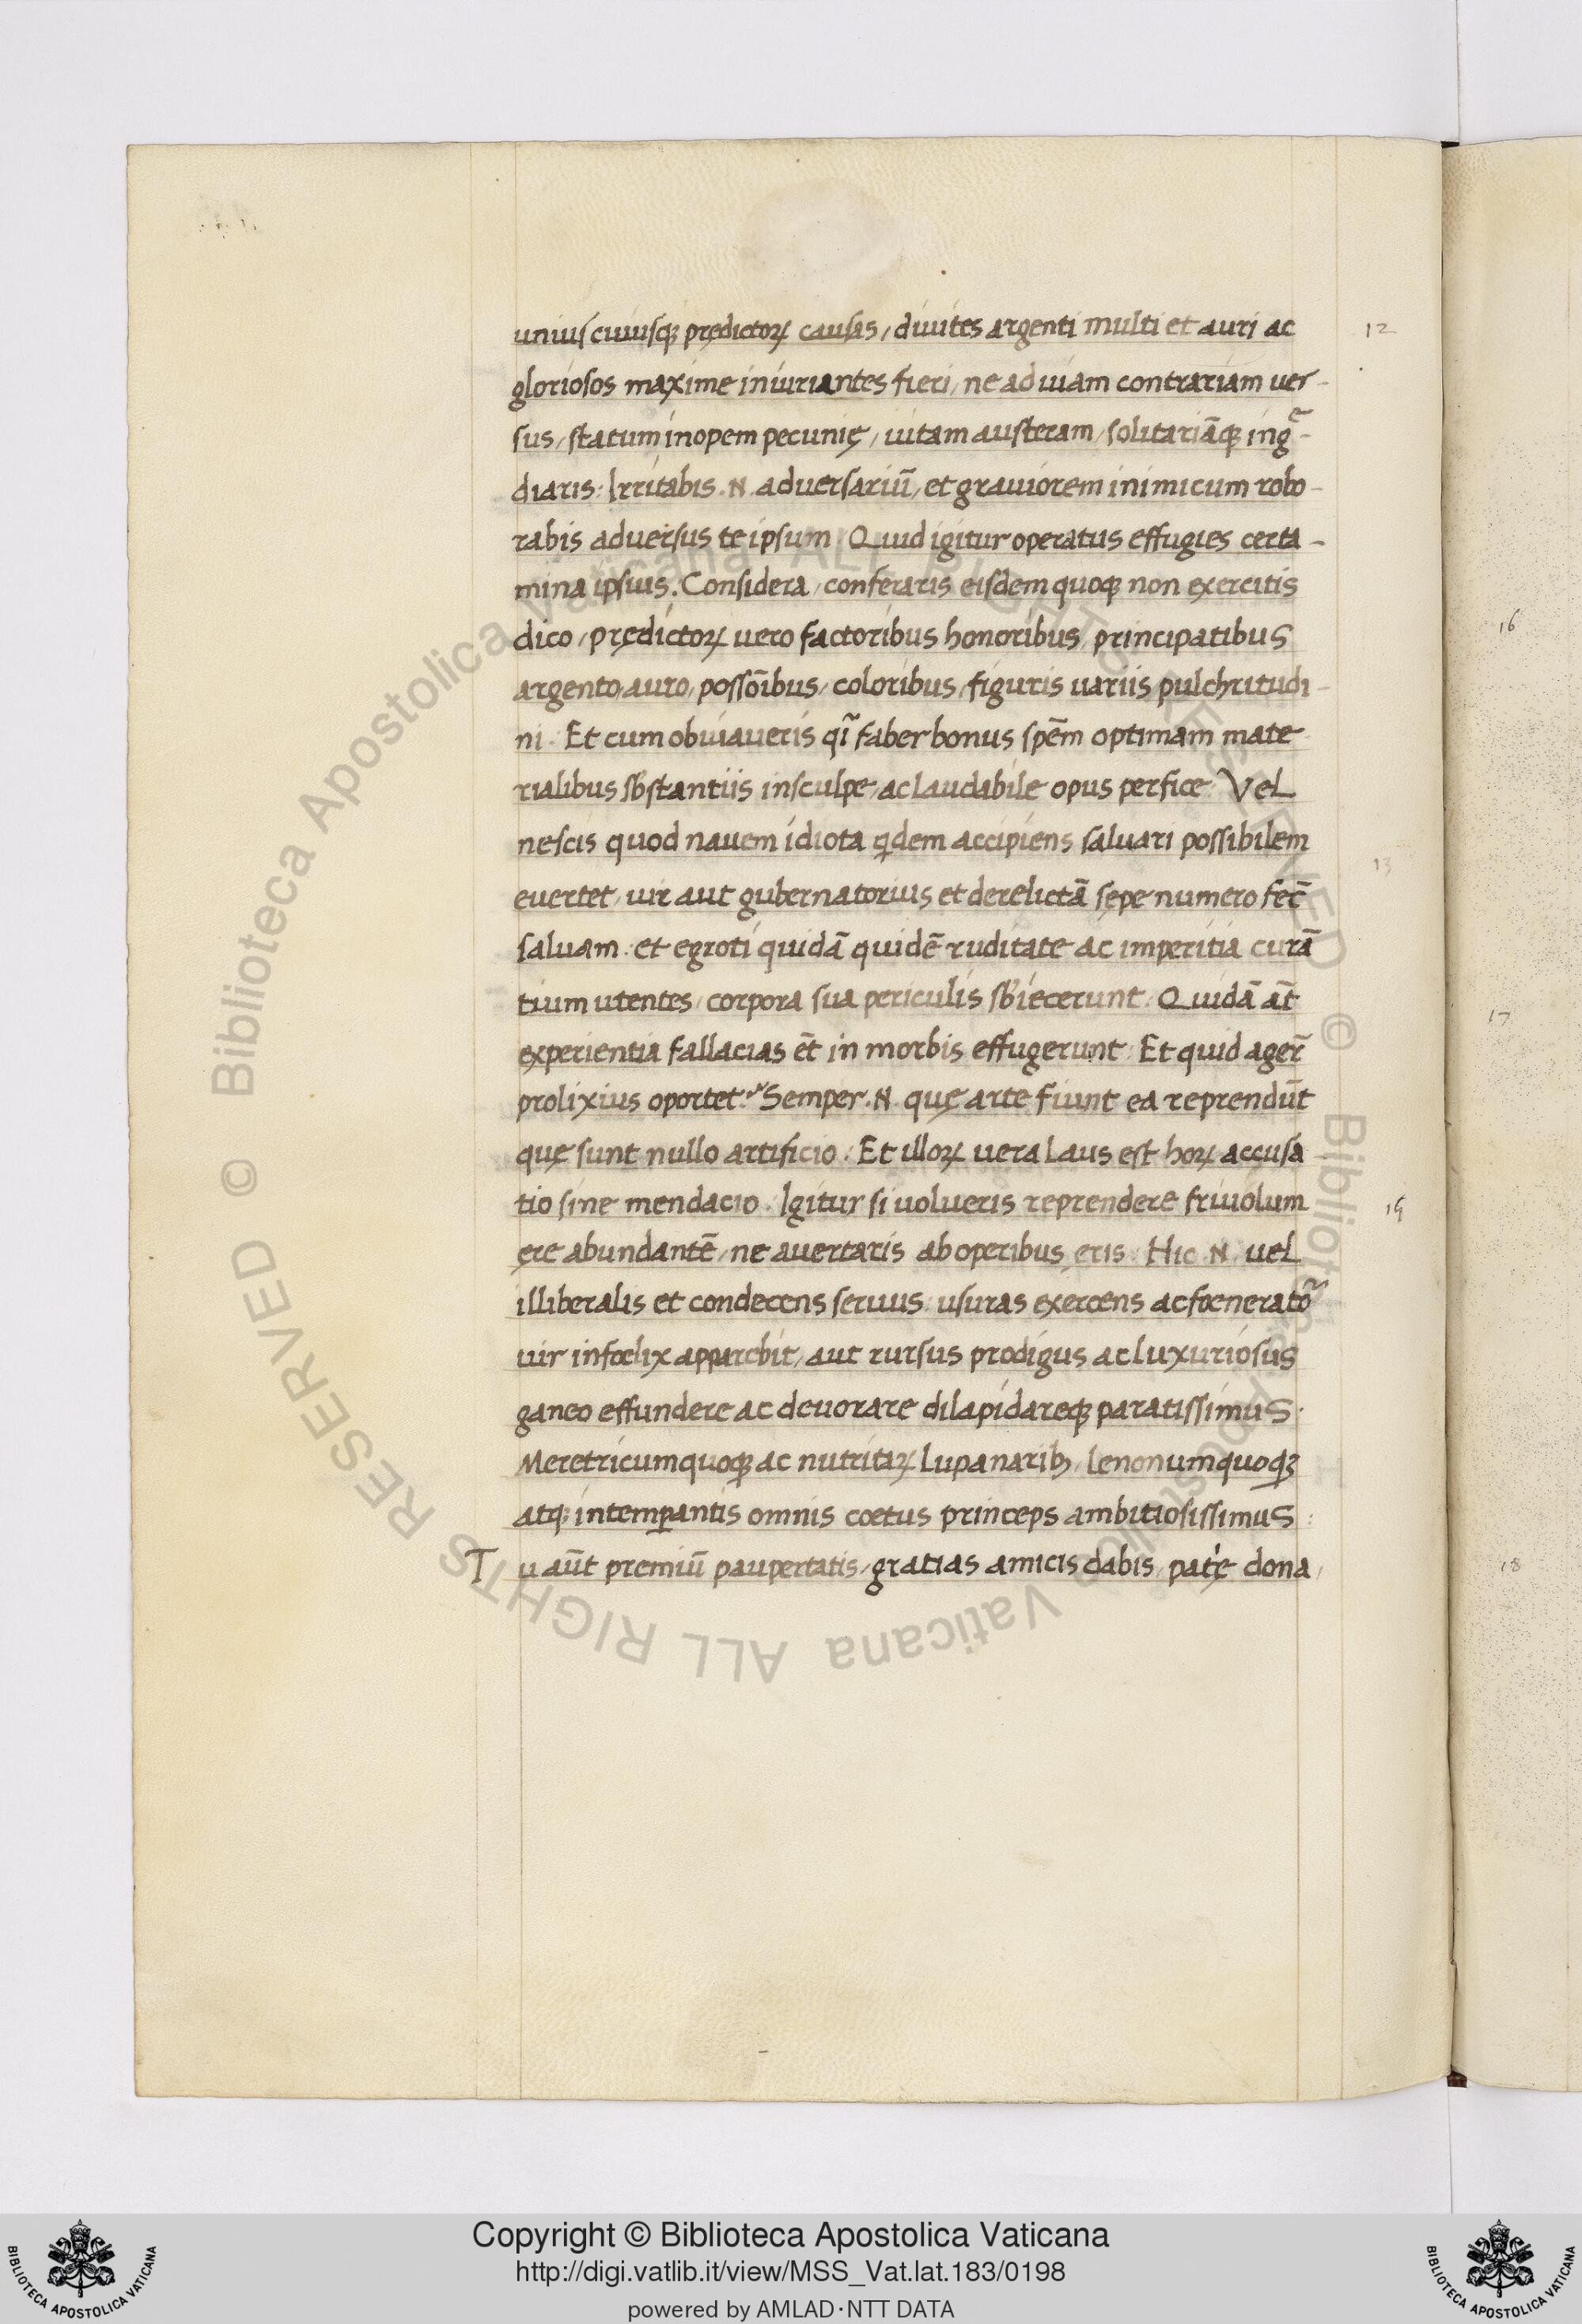 uniuſcuiuſqꝫ prędictoꝝ cauſas / diuites argenti multi et auri ac
glorioſos maxime iniuriantes fieri / ne ad uiam contrariam uer-
sus / ſtatum inopem pecunię / uitam auſteram / ſolitariāqꝫ ingᵉ̄-
diaris : Irritabis .N. aduerſariū / et grauiorem inimicum robo-
rabis aduerſus te ipſum : Quid igitur operatus effugies certa-
mina ipſius . Conſidera / conferaris eiſdem quoqꝫ non exercitis
dico / prędictoꝝ uero factoribus honoribus / principatibus
argento / auro / poſſōibus / coloribus / figuris uariis pulchritudi-
ni . Et cum obuiaueris qī faber bonus ſpēm optimam mate-
rialibus ſbſtantiis inſculpe / ac laudabile opus perfice . Vel
neſcis quod nauem idiota qdem accipiens ſaluari poſſibilem
euertet / uir aut gubernatorius et derelictā ſępe numero fec̄
ſaluam : et egroti quidā quidē ruditate ac imperitia curā
tium utentes / corpora ſua periculis ſbiecerunt . Quidā at̄
experientia fallacias et̄ in morbis effugerunt : Et quid ager̄
prolixius oportet ? Semper .N. quę arte fiunt ea reprendūt
quę ſunt nullo artificio : Et illoꝝ uera laus est hoꝝ accuſa-
tio ſine mendacio . Igitur ſi uolueris reprendere friuolum
ęre abundantē / ne auertaris ab operibus ęris : Hic .N. uel
illiberalis et condecens ſeruus : uſuras exercens ac foenerato᷑
uir infoelix apparebit / aut rurſus prodigus ac luxurioſus
ganeo effundere ac deuorare dilapidareqꝫ paratiſſimus .
Meretricum quoqꝫ ac nutritaꝝ lupanaribꝫ / lenonum quoqꝫ
atqꝫ intemꝑantis omnis coetus princeps ambitioſiſſimus :
Tu aūt premiū paupertatis / gratias amicis dabis / patrię dona /
12
13
15
16
17
18
Copyright © Biblioteca Apostolica Vaticana
http://digi.vatlib.it/view/MSS_Vat.lat.183/0198
powered by AMLAD·NTT DATA
BIBLIOTECA APOSTOLICA VATICANA
BIBLIOTECA APOSTOLICA VATICANA
© Biblioteca Apostolica Vaticana ALL RIGHTS RESERVED © Biblioteca Apostolica Vaticana ALL RIGHTS RESERVED